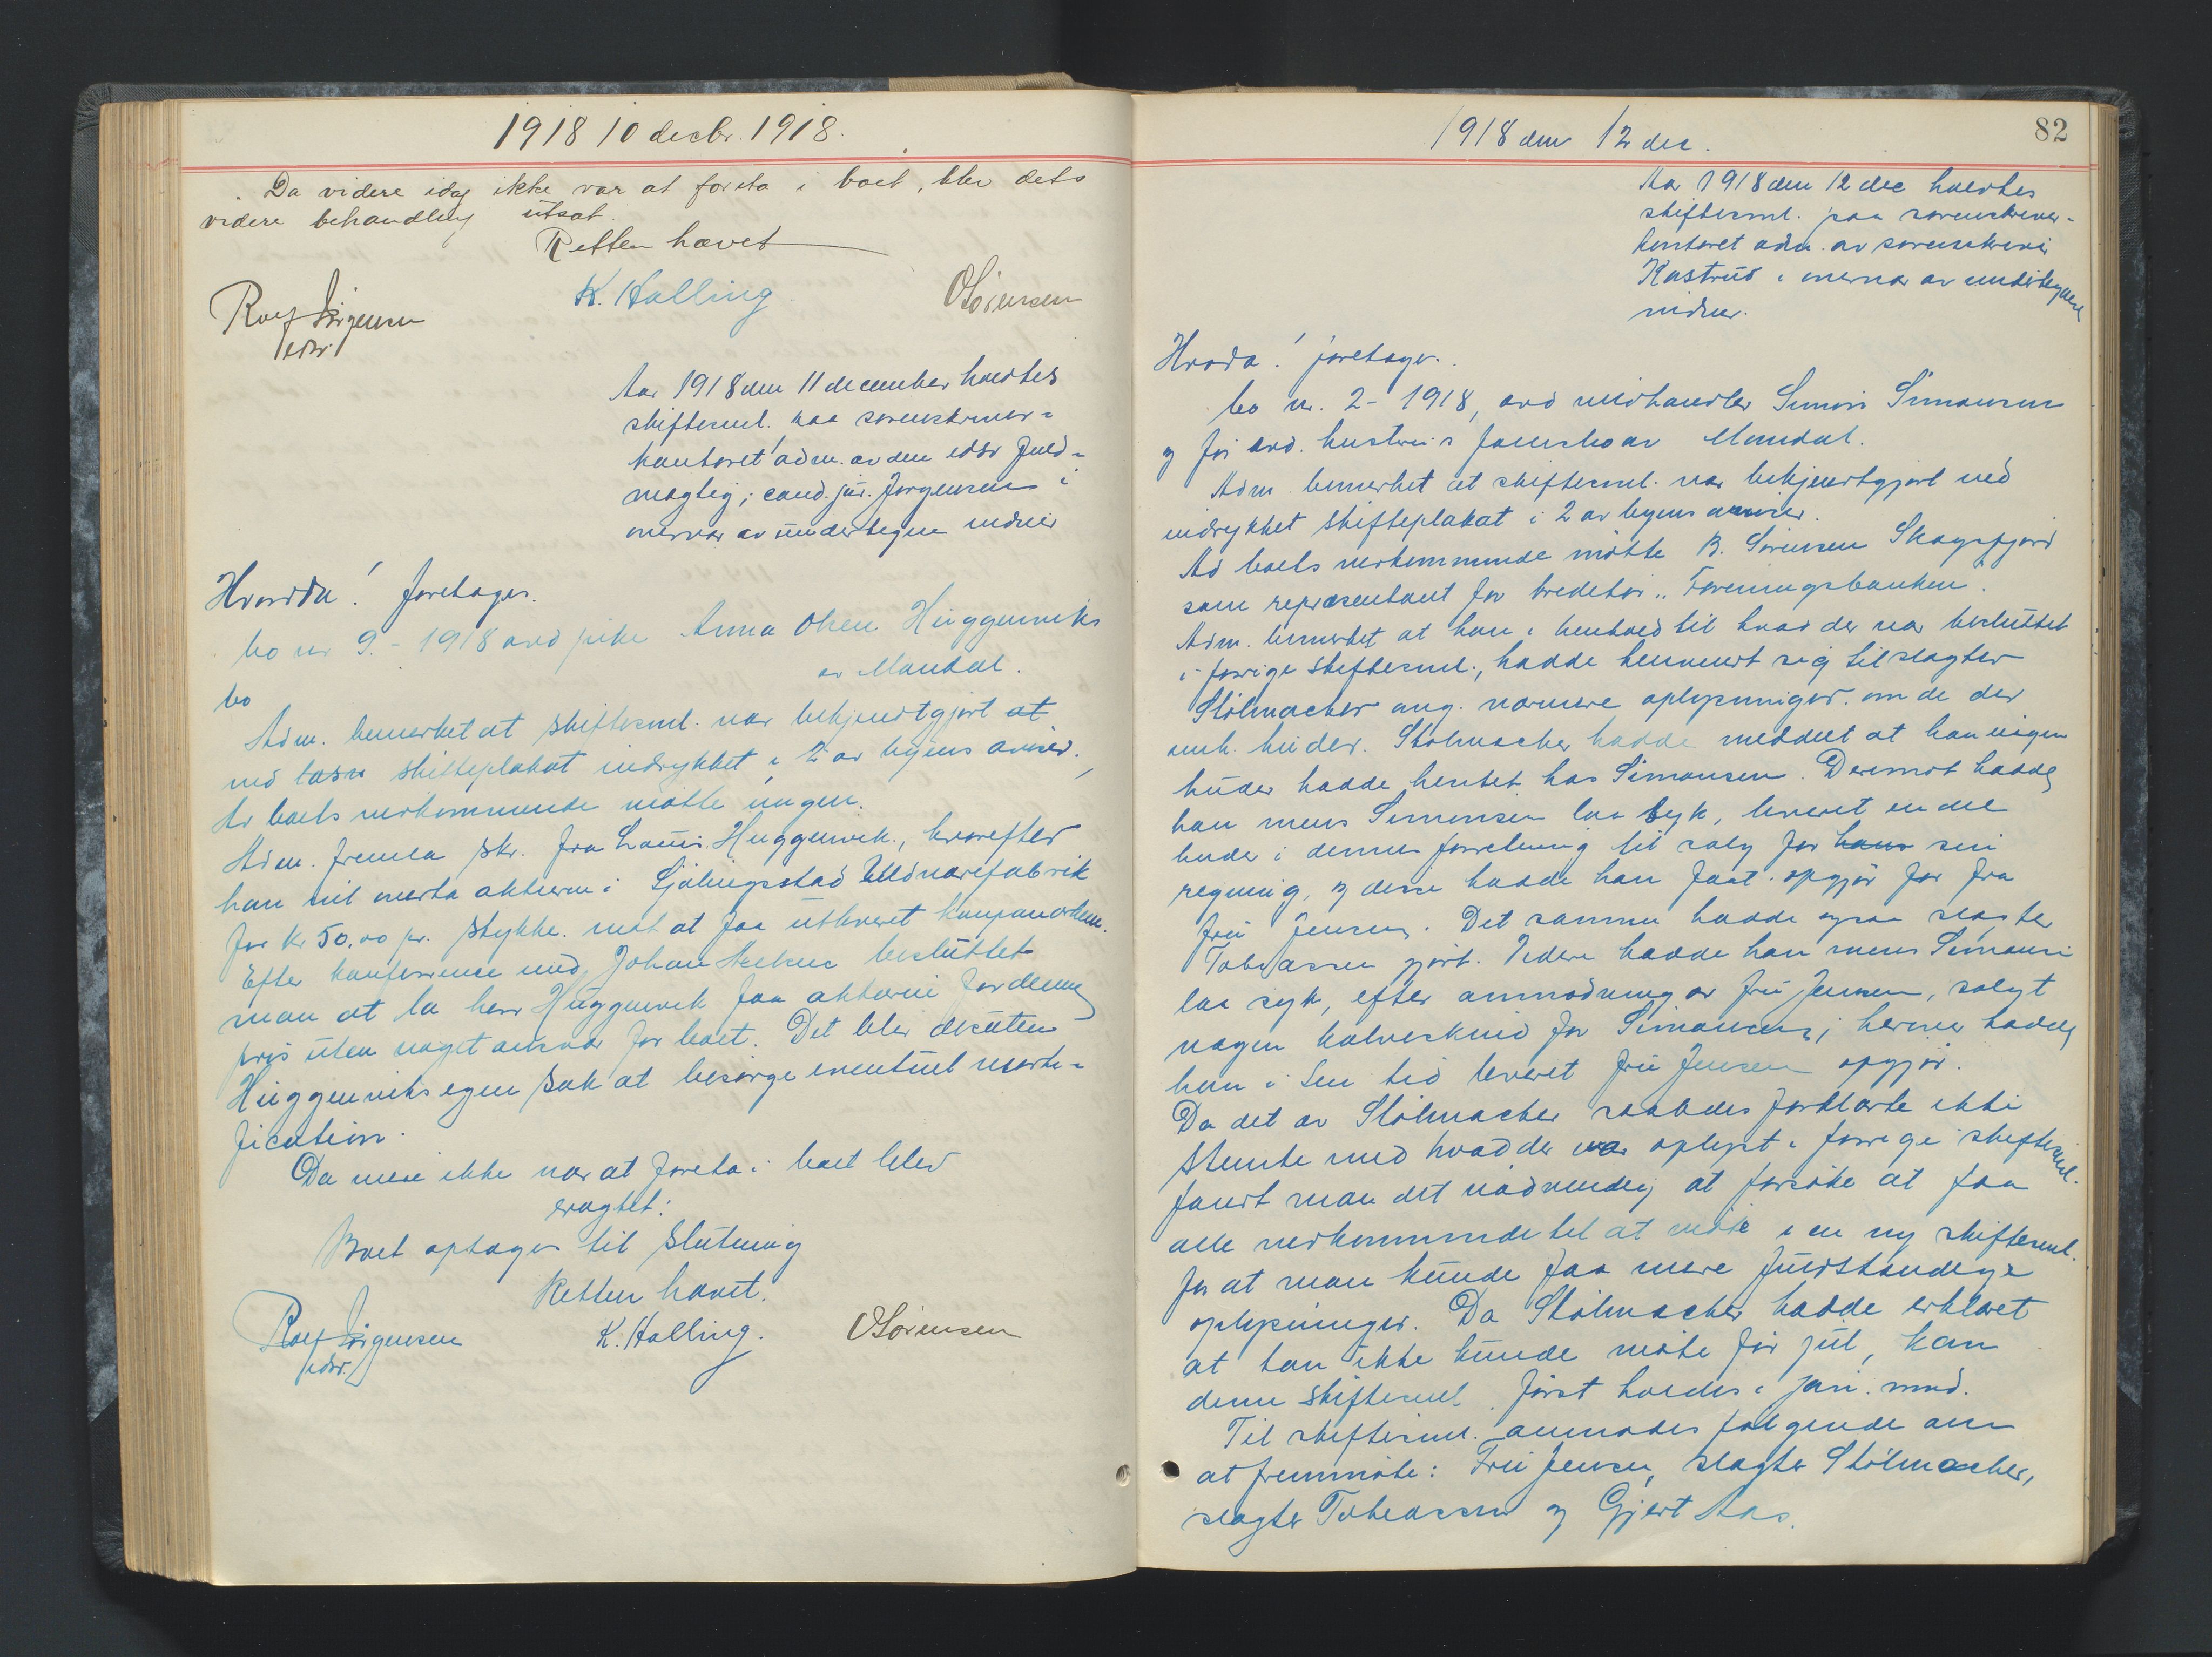 1918 10 decbr. 1918.
Da videre idag ikke var at foreta i boet, blev dets
videre behandling utsat.
Retten hævet
Rolf Jørgensen K. Halling OSørensen
edsv.
Aar 1918 den 11 december holdtes
skiftesml. paa sorenskriver-
kontoret adm. av den edsv fuld-
mægtig, cand. jur. Jørgensen i
overvær av undertegn vidner
Hvorda! foretages.
bo nr 9. - 1918 avd pike Anna Olsen Huggenviks
av Mandal.
bo
Adm. bemerket at skiftesml. var bekjendtgjort at
ved skifteplakat indrykket i 2 av byens aviser.
Av boets vedkommende møtte ingen.
Adm. fremla skr. fra Louis Huggenvik, hvorefter
han vil overta aktierne i Sjølingstad Uldvarefabrik
for kr 50,00 pr. stykke mot at faa utleveret kuponarkene.
Efter konference med Johan besluttet
man at la herr Huggenvik faa aktierne for denne
pris uten noget ansvar for boet. Det blev desuten
Huggenviks egen sak at besørge eventuel morti-
fication.
Da mere ikke var at foreta i boet blev
eragtet:
Boet optages til slutning
Retten hævet.
Rolf Jørgensen K. Halling. OSørensen
edsv.
82
1918 den 12 dec.
Aar 1918 den 12 dec holdtes
skiftesml. paa sorenskriver-
kontoret adm. av sorenskriver
Kastrud i overvær av undertegnede
vidner.
Hvorda! foretages.
bo nr. 2 - 1918, avd vedhandler Simon Simonsen
og før avd. hustru's fællesbo av Mandal.
Adm bemerket at skiftesml. var bekjendtgjort ved
indrykket skifteplakat i 2 av byens aviser.
Av boets vedkommende møtte B. Sørensen Skogsfjord
som repræsentant for kreditor "Foreningsbanken".
Adm. bemerket at han i henhold til hvad der var besluttet
i forrige skiftesml., hadde henvendt sig til slagter
Stølmacher ang. nærmere oplysninger om de der
omh. huder. Stølmacher hadde meddelt at han ingen
huder hadde hentet hos Simonsen. Derimot hadde
han mens Simonsen laa syk, leveret en del
huder i dennes forretning til salg for hans sin
regning, og disse hadde han faat opgjør for fra
fru Jensen. Det samme hadde ogsaa slagter
Tobiassen gjort. Videre hadde han mens Simonsen
laa syk, efter anmodning av fru Jensen, solgt
nogen kalveskind for Simonsen; herover hadde
han i sin tid leveret fru Jensen opgjør.
Da det av Stølmacher saaledes forklarte ikke
stemte med hvad der var oplyst i forrige skiftesml.
fandt man det nødvendig at forsøke at faa
alle vedkommende til at møte i en ny skiftesml.
for at man kunde faa mere fuldstændige
oplysninger. Da Stølmacher hadde erklæret
at han ikke kunde møte før jul, kan
denne skiftesml. først holdes i jan. mnd.
Til skiftesml. anmodes følgende om
at fremmøte: Fru Jensen, slagter Stølmacher,
slagter Tobiassen og Gjert Aas.